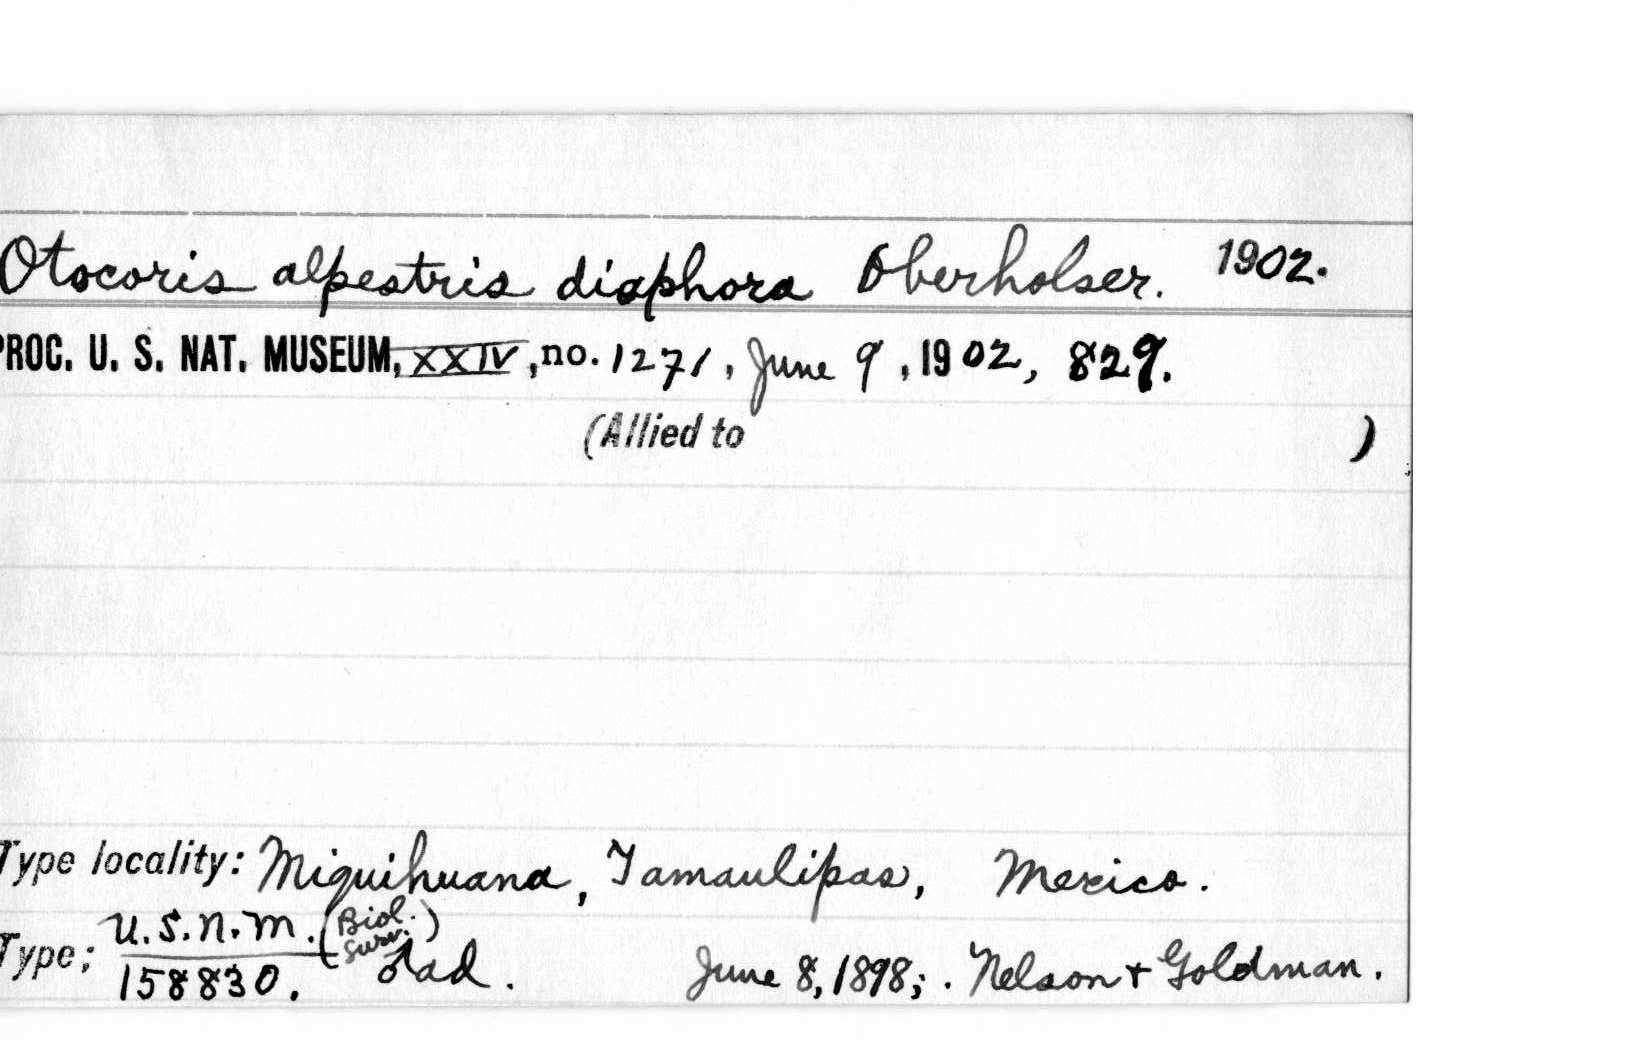 Otocoris alpestris diaphora Oberholser. 1902.
PROC. U. S. NAT. MUSEUM, XXIV, no. 1271, June 9, 1902, 829.
(Allied to )
Type locality: Miquihuana, Tamaulipas, Mexico.
U.S.N.M. (Biol. Surv.)
Type; 158830. ♂ad. June 8, 1898; . Nelson + Goldman.